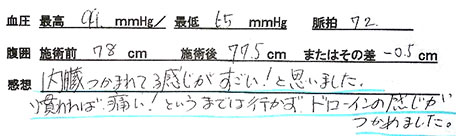 血圧 最高 91 mmHg/ 最低 65 mmHg 脈拍 72
腹囲 施術前 78 cm 施術後 77.5 cm またはその差 -0.5 cm
感想 内臓つかまれてる感じがすごい!と思いました。
慣れれば痛い!というまでは行かず ドローインの感じが
つかれました。